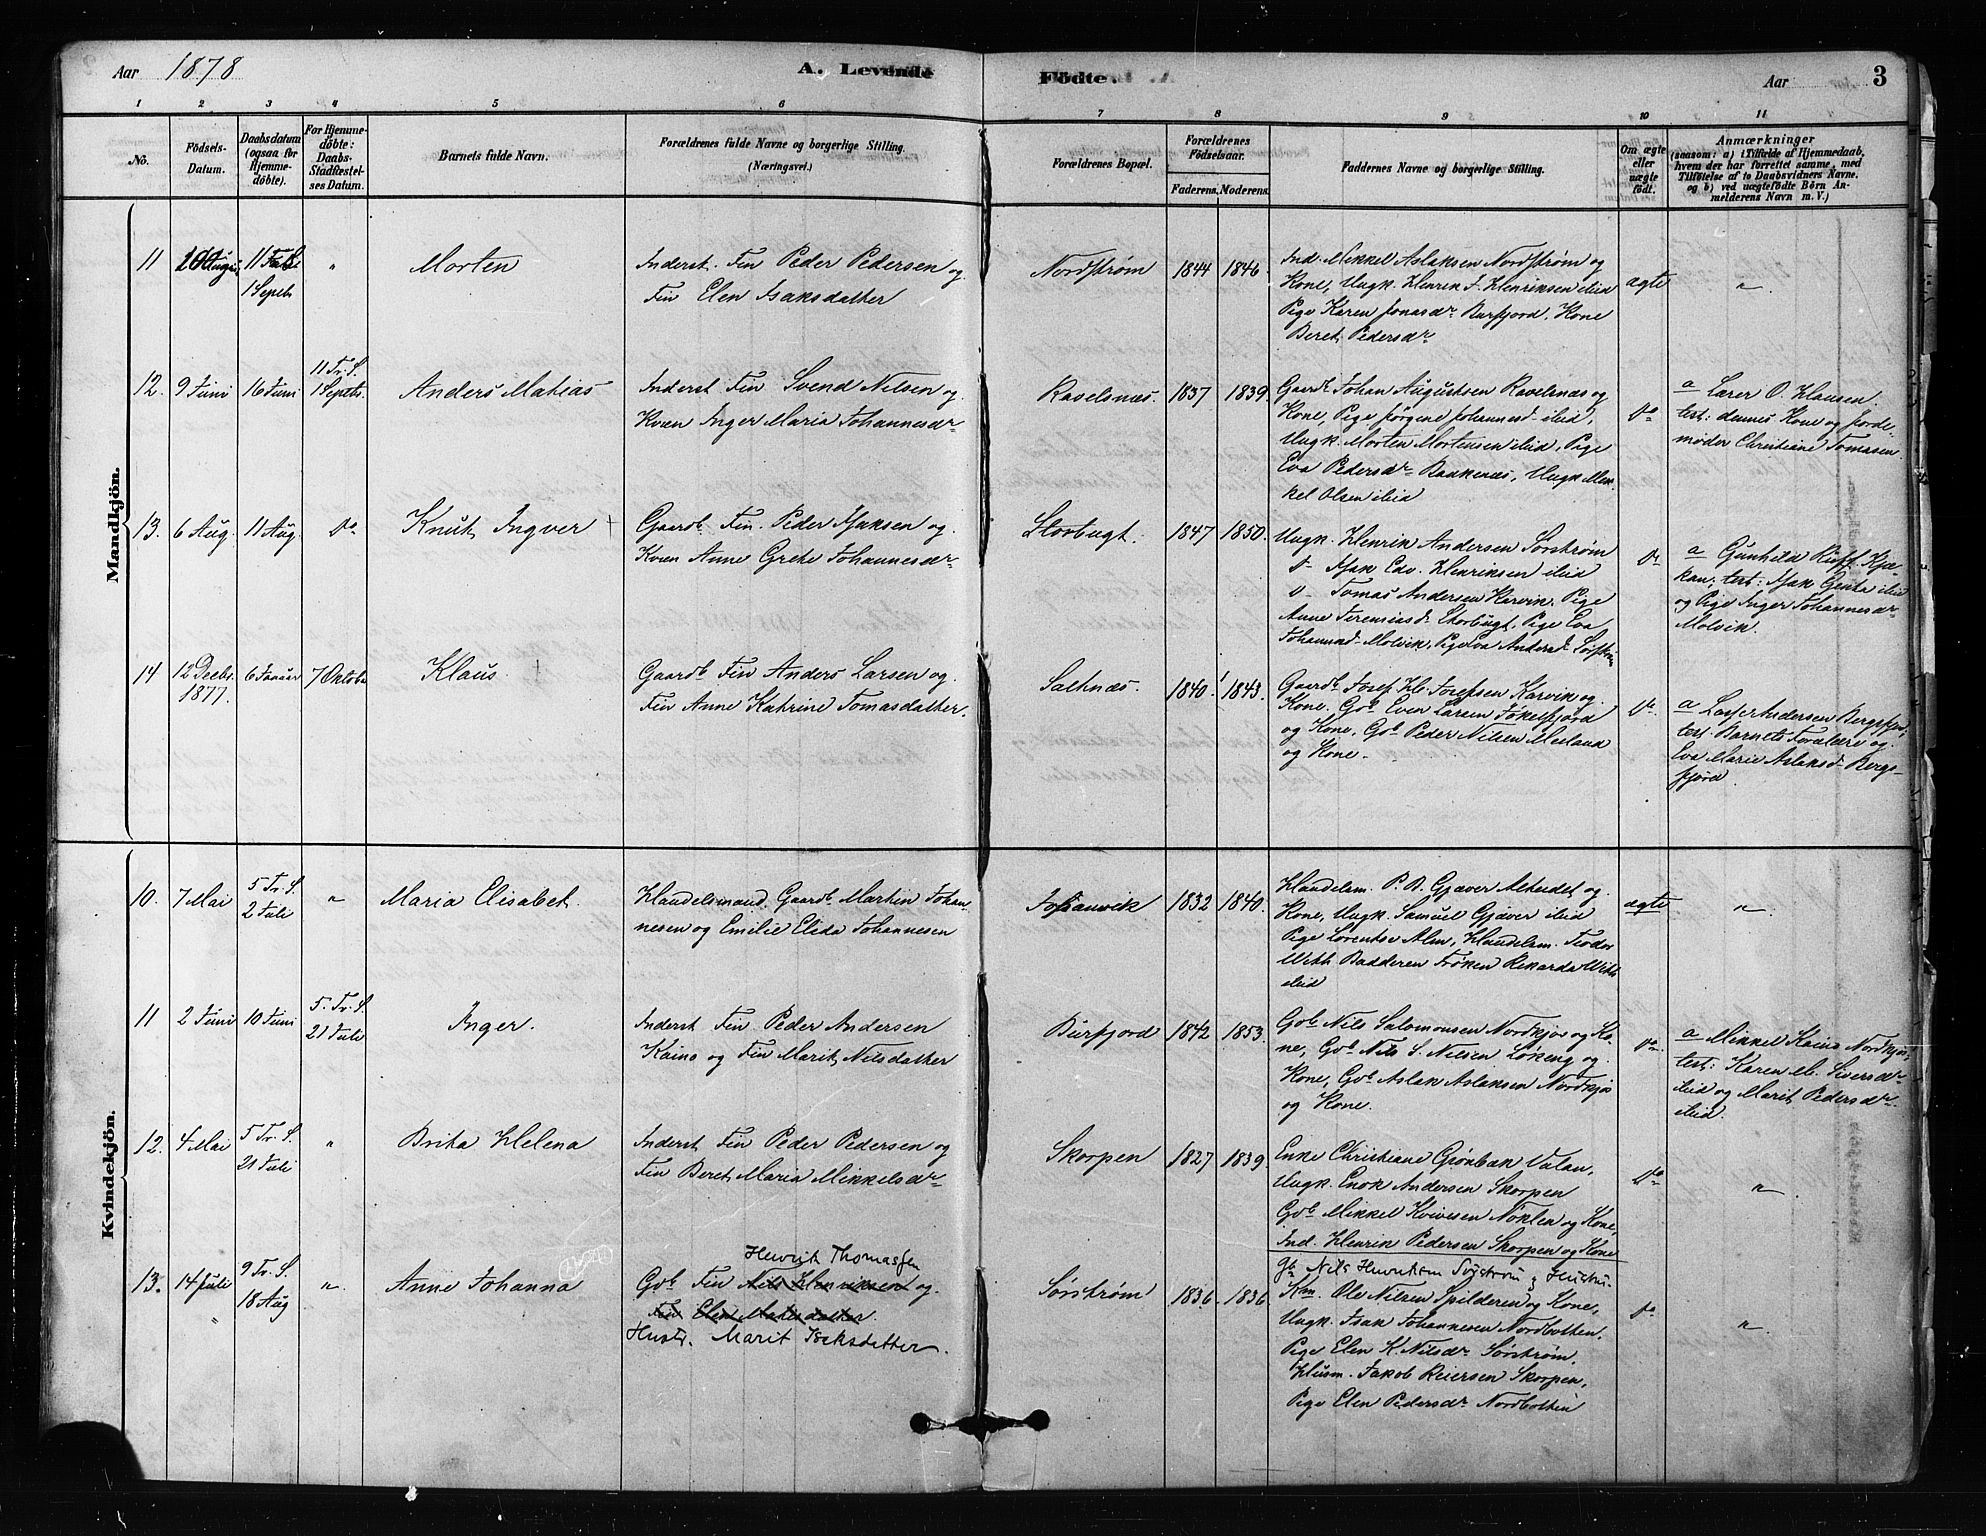 Aar 1878 A. Levende Födte. Aar 3
1 2 3 4 5 6 7 8 9 10 11
No.
Födsels-Datum.
Daabsdatum (ogsaa for Hjemme-döbte).
For Hjemme-döbte: Daabs-Stadfæstel-ses Datum.
Barnets fulde Navn.
Forældrenes fulde Navne og borgerlige Stilling.
(Næringsvei.)
Forældrenes Bopæl.
Forældrenes Födselsaar.
Faderens. Moderens.
Faddernes Navne og borgerlige Stilling.
Om ægte eller uægte födt.
Anmærkninger
(saasom: a) i Tilfælde af Hjemmedaab,
hvem der har forrettet samme, med
Tilföielse af to Daabsvidners Navne.
og b) ved uægtefödte Börn An-
melderens Navn m. V.)
Mandkjön.
11 11
1 Septr
"
Morten
Inderst. Fin Peder Pedersen og
Fin Elen Isaksdatter
Nordstrøm 1844 1846.
Ind. Mikkel Aslaksen Nordstrøm og
Kone, Ungk. Henrik J. Henriksen ibid
Pige Karen Jonasdr Burfjord, Kone
Beret Pedersdr
ægte
"
12. 9 Juni 16 Juni
11 Tr. S.
1 Septr.
Anders Mathias
Inderst Fin Svend Nilsen og
Kvæn Inger Maria Johannesdr
Ravelsnæs. 1837 1839.
Gaardb Johan Augustsen Ravelsnæs og
Kone, Pige Jørgine Johannesd ibid,
Ungk. Morten Mortensen ibid, Pige
Eva Pedersdr Bankenæs, Ungk. Mik-
kel Olsen ibid
do
a Lærer O. Hansen.
test: dennes Kone og Jorde-
moder Christiane Tomasen.
13. 6 Aug. 11 Aug. do
Knut Ingver +
Gaardb. Fin. Peder Isaksen og
Kvæn Anne Grete Johannesdr
Storbugt. 1847 1850.
Ungk. Henrik Andersen Sørstrøm
do Isak Edv. Henriksen ibid
do Tomas Andersen Karvik, Pige
Anne Jeremiasd Storbugt, Pige Eva
Johannsd Molvik, Pige Eva Andersd Sørstrøm
do
a Gunhild Kjæ-
kan; test: Isak ibid
og Pige Inger Johannesdr
Molvik.
14 12 Decbr. 1877. 6 Januar 7 Oktober
Klaus. +
Gaardb Fin Anders Larsen og
Fin Anne Katrine Tomasdatter.
Saltnæs. 1840. 1843.
Gaardb Josef Hb. Josefsen Karvik og
Kone. Gb Even Larsen Jøkelfjord
og Kone, Gb Peder Nilsen Meiland
og Kone.
do.
a Andersen Bergsfjor,
test. Barnets Forældre og
Eva Marie Aslaksd Bergs-
fjord
Kvindekjön.
10. 7 Mai
5 Tr. S.
2 Juli
"
Maria Elisabet.
Handelsmand, Gaardb Martin Johan-
nesen og Emilie Elida Johannesen
Johanvik 1832 1840.
Handelsm. P. B. Gjæver Alteidet og
Kone, Ungk. Samuel Gjæver ibid
Pige Lorentse Alm, Handelsm. Teodor
Wihl Badderen Frøken Rikarda Wihl
ibid
ægte
"
11 2 Juni 10 Juni
5. Tr. S.
21 Juli
Inger.
Inderst Fin Peder Andersen
Kaino og Fin Marit Nilsdatter
Burfjord 1842 1853.
Gb Nils Salomonsen Nordkjos og Ko-
ne, Gb Nils S. Nilsen Løkeng og
Kone, Gb Aslak Aslaksen Nordkjos
og Kone.
do.
a Mikkel Kaino Nordkjos,
test: Karen M. Siversdr
ibid og Marit Pedersdr
ibid.
12. 4 Mai
5 Tr. S.
21 Juli
"
Brita Helena
Inderst Fin Peder Pedersen og
Fin Beret Maria Mikkelsdr
Skorpen 1827 1839.
Enke Christiane Grønbæk Valan,
Ungk. Enok Andersen Skorpen
Gb Mikkel Kvivesen Nøklen og Kone,
Ind. Henrik Pedersen Skorpen og Kone
do
"
13. 14 Juli
9 Tr. S.
18 Aug
"
Anne Johanna
Henrik Thomassen
Gb Fin Nils Henriksen og
Fin Elen Matisdatter.
Hustr. Marit Isaksdatter.
Sørstrøm 1836 1836
Gb Nils Henriksen Sørstrøm og Hustru.
Km. Ole Nilsen Spilderen og Kone,
Ungk. Isak Johannesen Nordbotten,
Pige Elen K. Nilsdr Sørstrøm,
Husm. Jakob Reiersen Skorpen,
Pige Elen Pedersdr Nordbotten
do
"